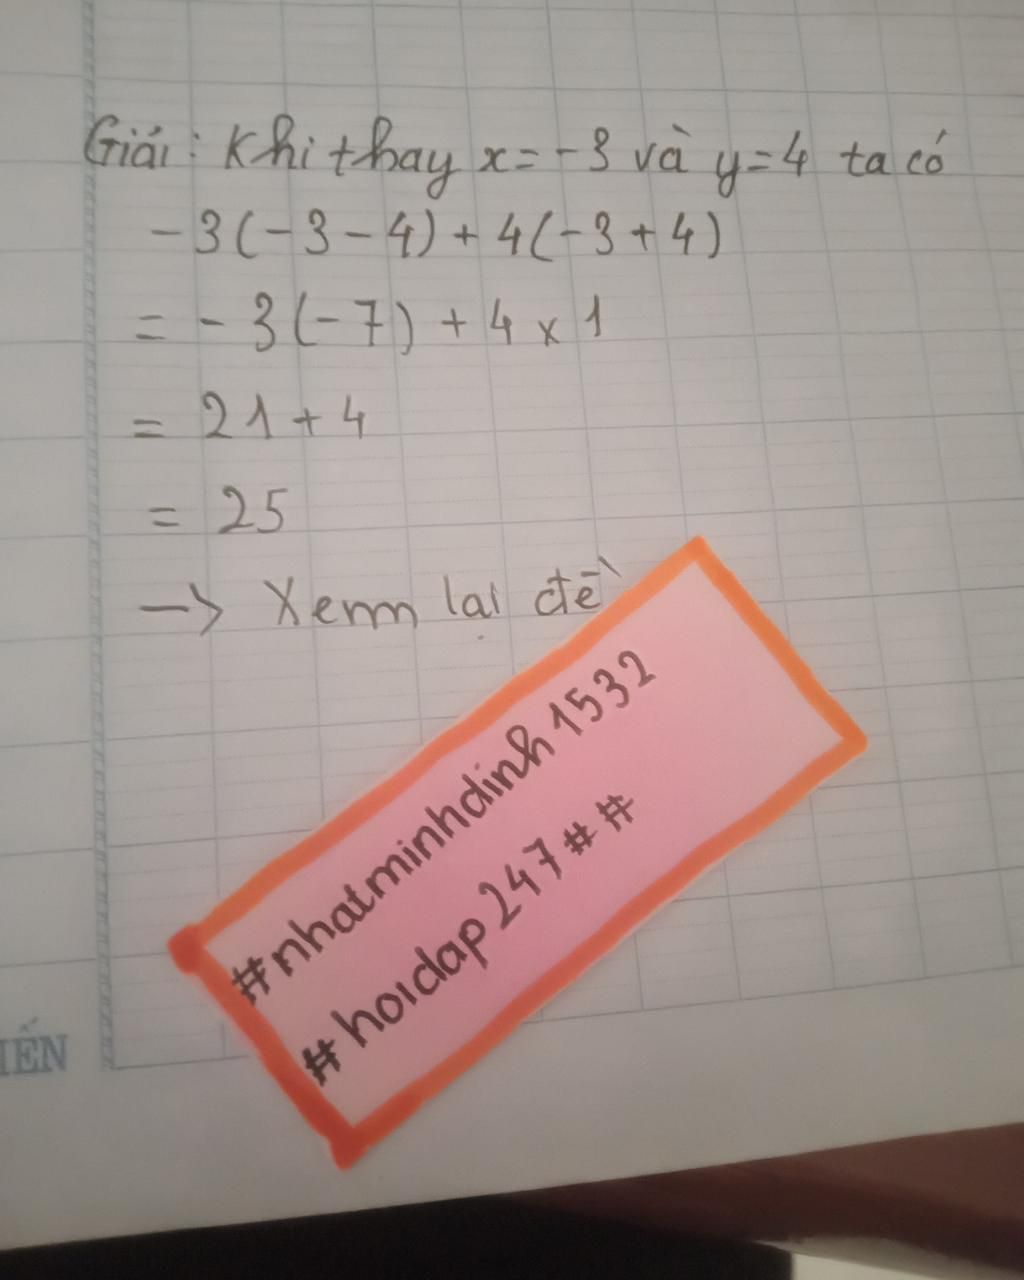 Giải: Khi thay x = -3 và y = 4 ta có
-3(-3-4) + 4(-3+4)
= -3(-7) + 4 x 1
= 21 + 4
= 25
-> Xem lại đề
#nhatminhdinh1532
#hoidap247##
IẾN